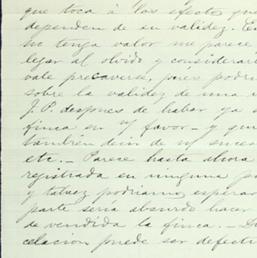 que toca á los efectos que
dependen de su validez. En
no tenga valor me parece
lejar al olvido y considerar
vale precaverse, pues podri
sobre la validez de una
J.P. despues de haber ya
finca en m/ favor - y que
tambien decir de m/ suces
etc. - Parece hasta ahora
registrada en ninguna
y talvez podriamos esperar
parte seria absurdo hacer
de vendida la finca. -
celacion puede ser defecti